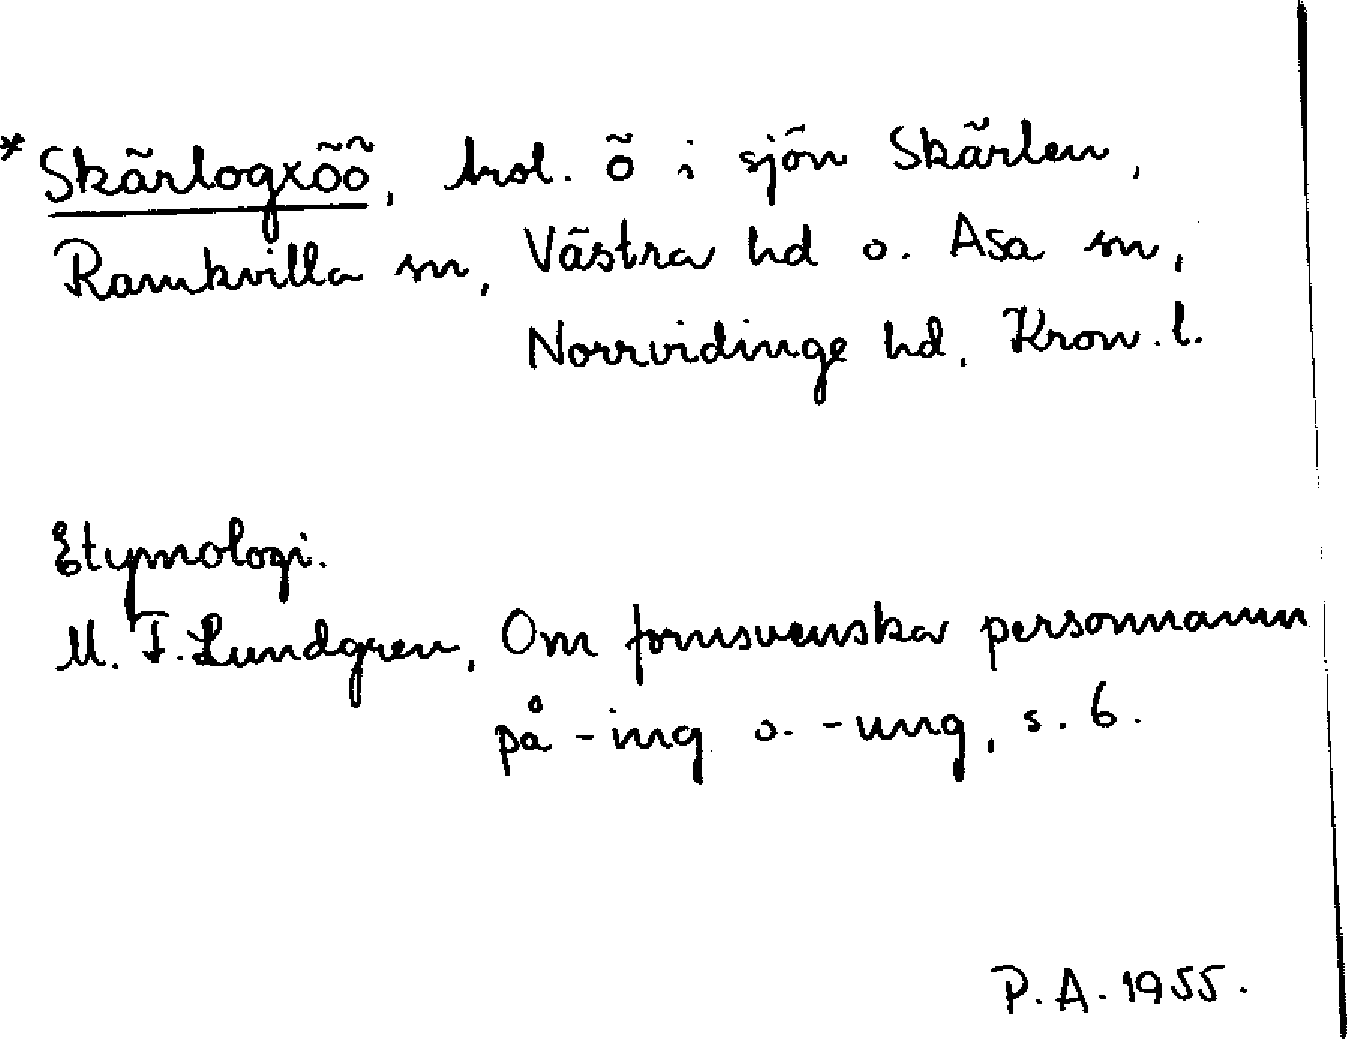 *Skärlogxöö, trol. ö i sjön Skärlen,
Ramkvilla sn, Västra hd o. Asa sn,
Norrvidinge hd, Kron. l.
Etymologi.
M. F. Lundgren, Om fornsvenska personnamn
på -ing o. -ung, s. 6.
P. A. 1955.